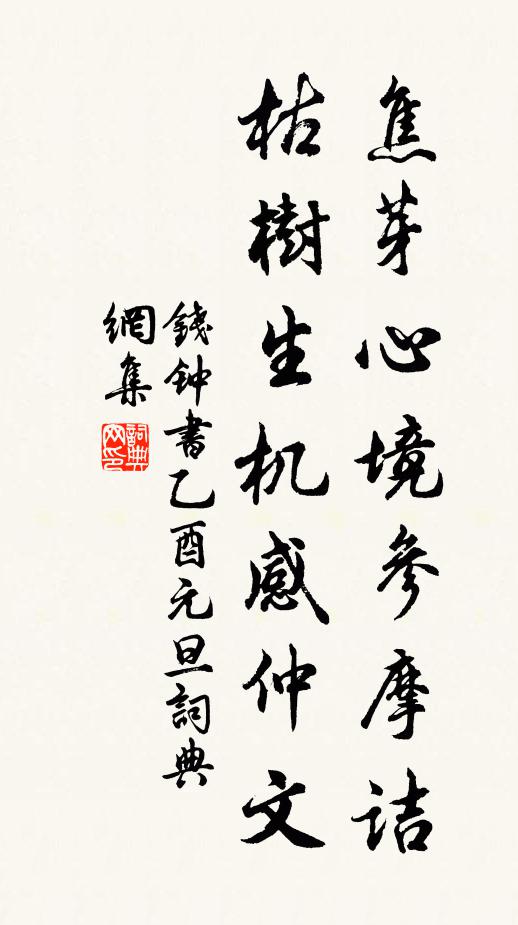 焦芽心境参摩詰
枯樹生机感仲文
錢钟書乙酉元旦詞典
網集
詞典
网印